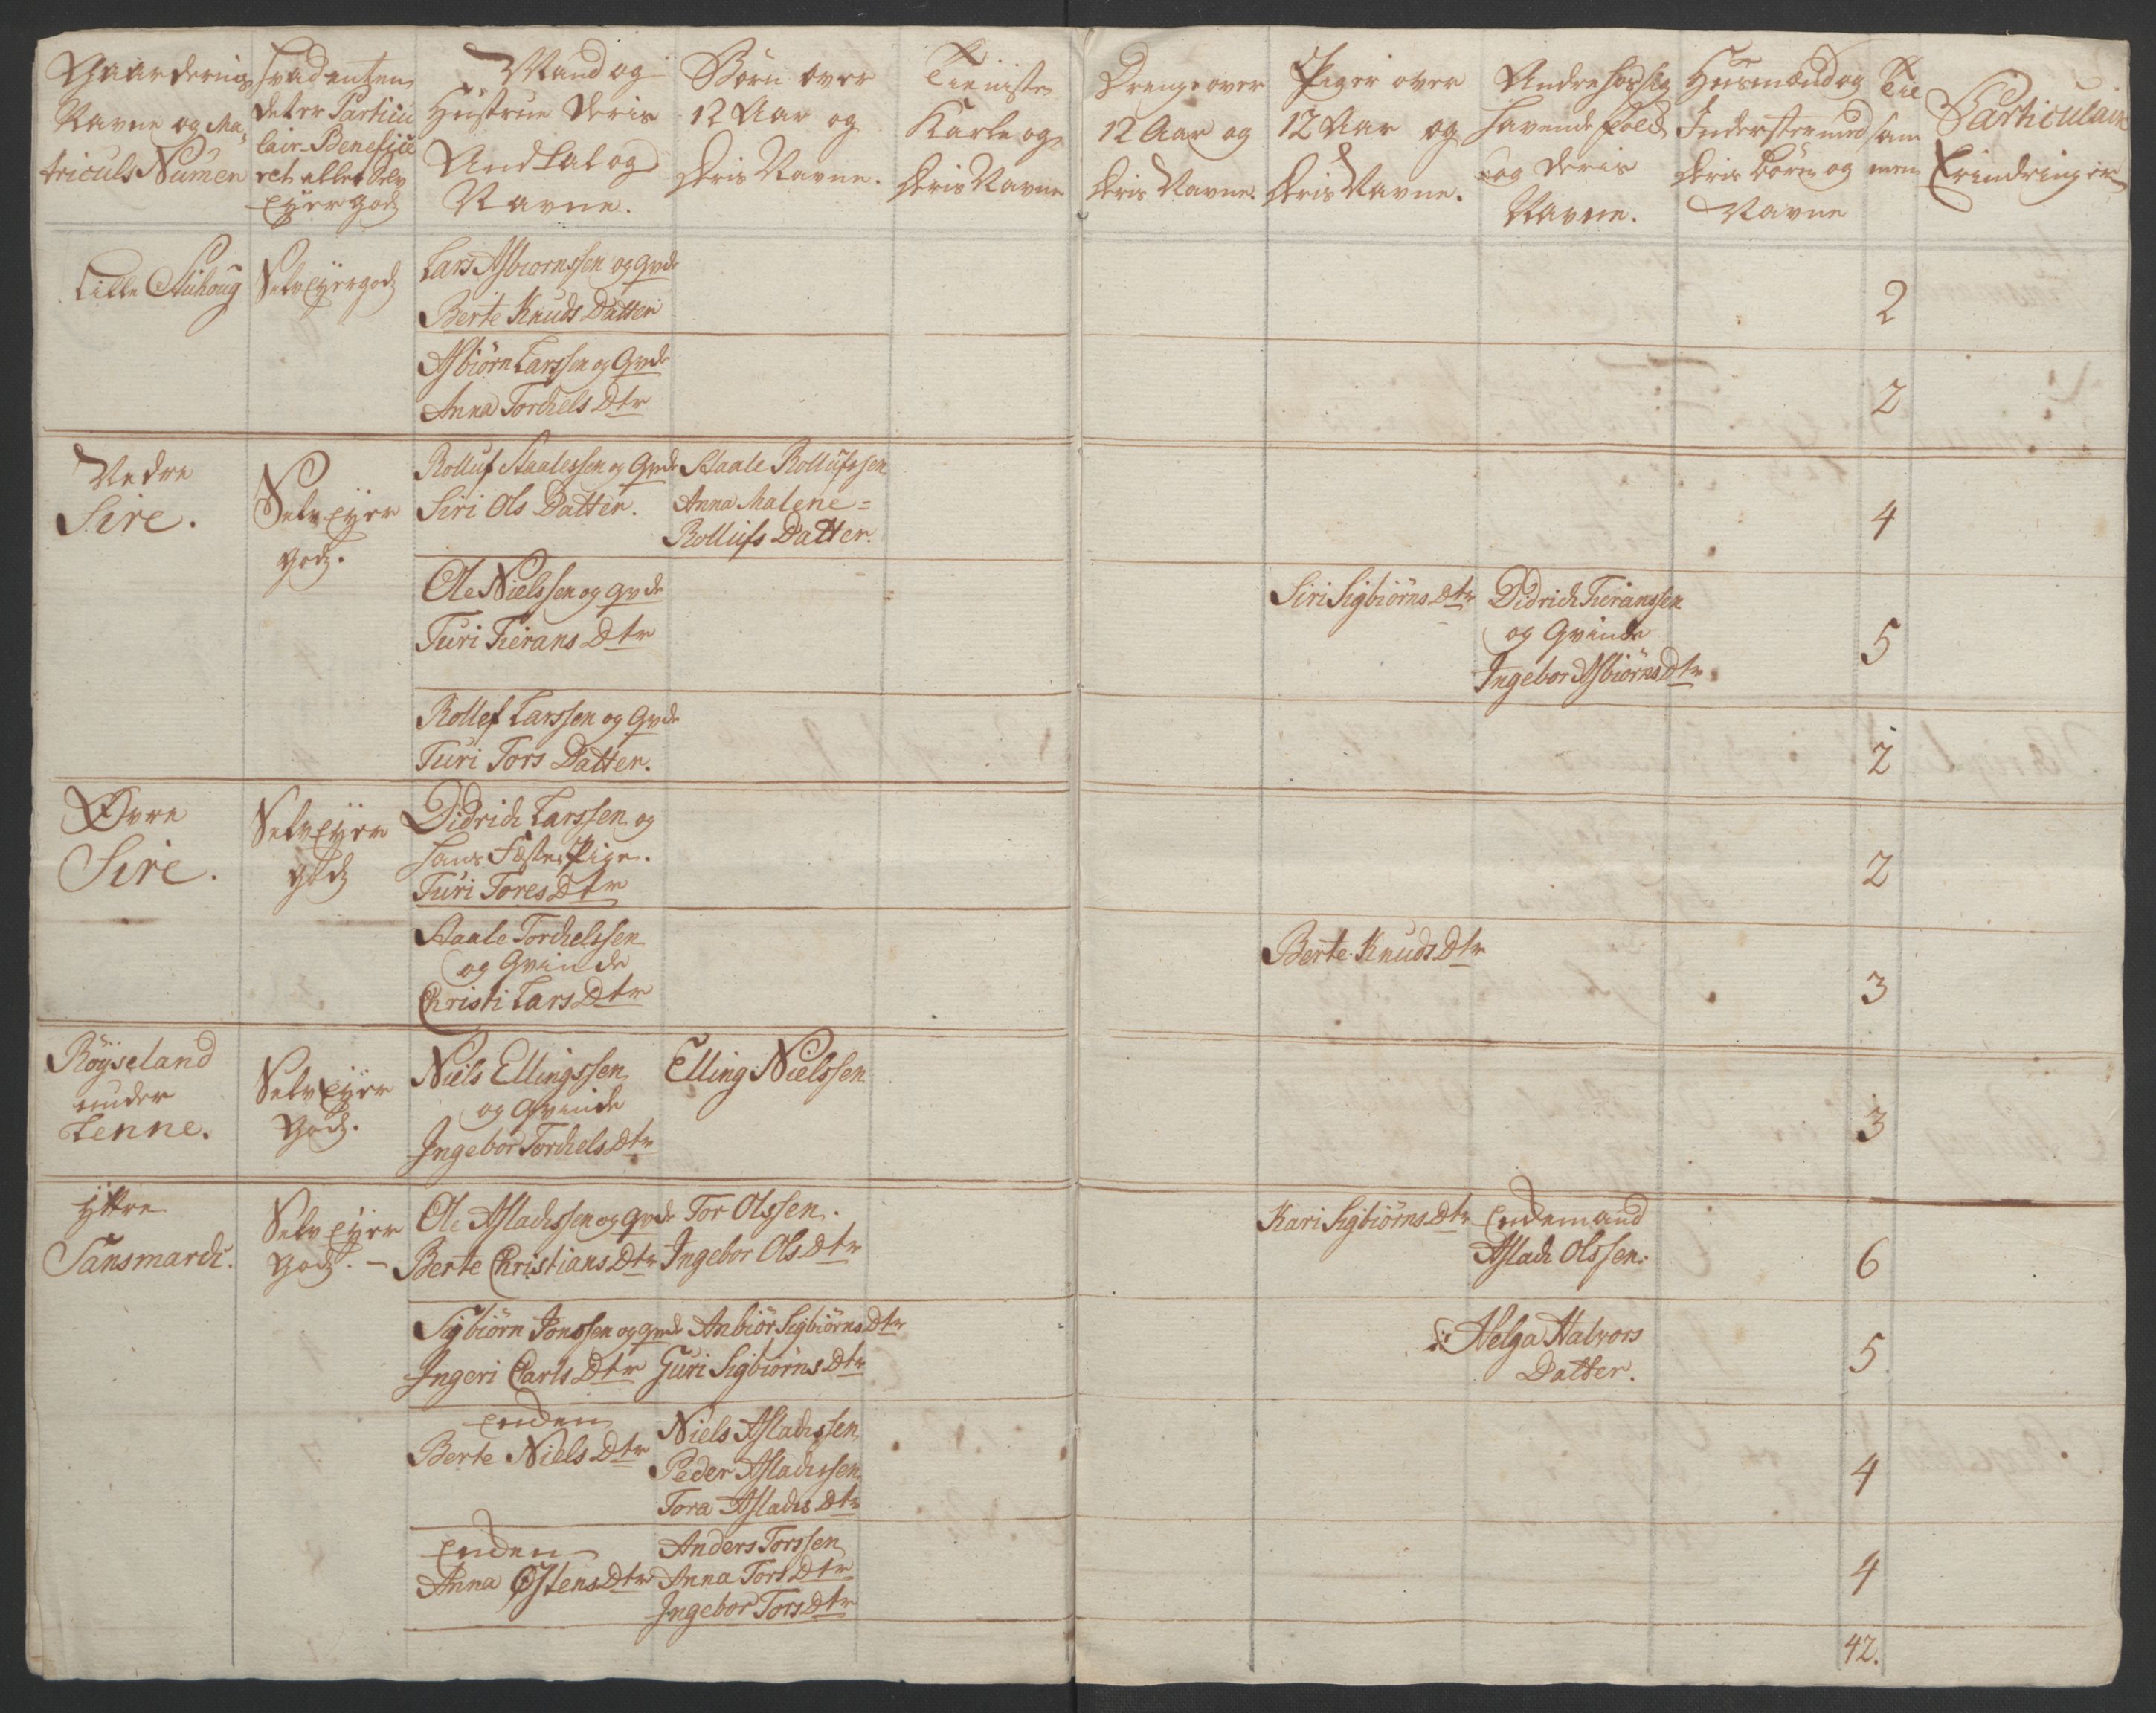 Gaardernis
Navne og Ma-
triculs Numer
hvad enten
det er Particu
lair Benefice
ret eller Selv
Eyer godz
Mand og
Hustrue deris
Andtal og
Navne.
Börn over
12 Aar og
deris Navne.
Tieniste
Karle og
deris Navne
Drenge over
12 Aar og
deris Navne.
Piger over
12 Aar og
deris Navne.
Andre hos sig
havende Folch
og deris
Navne.
Husmænd og
Inderster med
deris Börn og
Navne
Til
sam
men
Particulair
Erindringer
Lille Auhoug
Selv Eyergodz
Lars Asbiornssen og qvde
Berte Knuds Datter
2
Asbiörn Larssen og Qvde
Anna Torchels Dtr
2
Nedre
Sire.
Selv Eyer
godz.
Rolluf Staalessen og Qvde
Siri Ols Datter.
Staale Rollufssen
Anna Malene=
Rollufs Datter.
4
Ole Nielssen og qvde
Turi Tierans Dtr
Siri Sigbiörns Dtr
Didrich Tieranssen
og Qvinde
Ingebor Asbiörns Dtr
5
Rollef Larssen og Qvde
Turi Tors Datter.
2
Øvre
Sire.
Selv Eyer
godz
Didrich Larssen og
hans Fæste Pige.
Turi Tores Dtr
2
Staale Torchelssen
og Qvinde
Christi Lars Dtr
Berte Knuds Dtr
3
Röyseland
under
Lenne.
Selv Eyer
Godz.
Niels Ellingssen
og Qvinde
Ingebor Torchels Dtr
Elling Nielssen
3
Yttre
Tansmarch.
Selv Eyer
Godz. -
Ole Aslachssen og qvde
Berte Christians Dtr
Tor Olssen.
Ingebor Ols Dtr
Kari Sigbiörns Dtr
Enckemand
Aslach Olssen.
6
Sigbiörn Jonssen og qvde
Ingeri Carls Dtr
Anbiör Sigbiörns Dtr
Guri Sigbiörns Dtr
Helga Halvors
Datter.
5
Encken
Berte Niels Dtr
Niels Aslachssen
Peder Aslachssen
Tora Aslachs Dtr
4
Encken
Anna Østens Dtr
Anders Torssen
Anna Tors Dtr
Ingebor Tors Dtr
4
42.